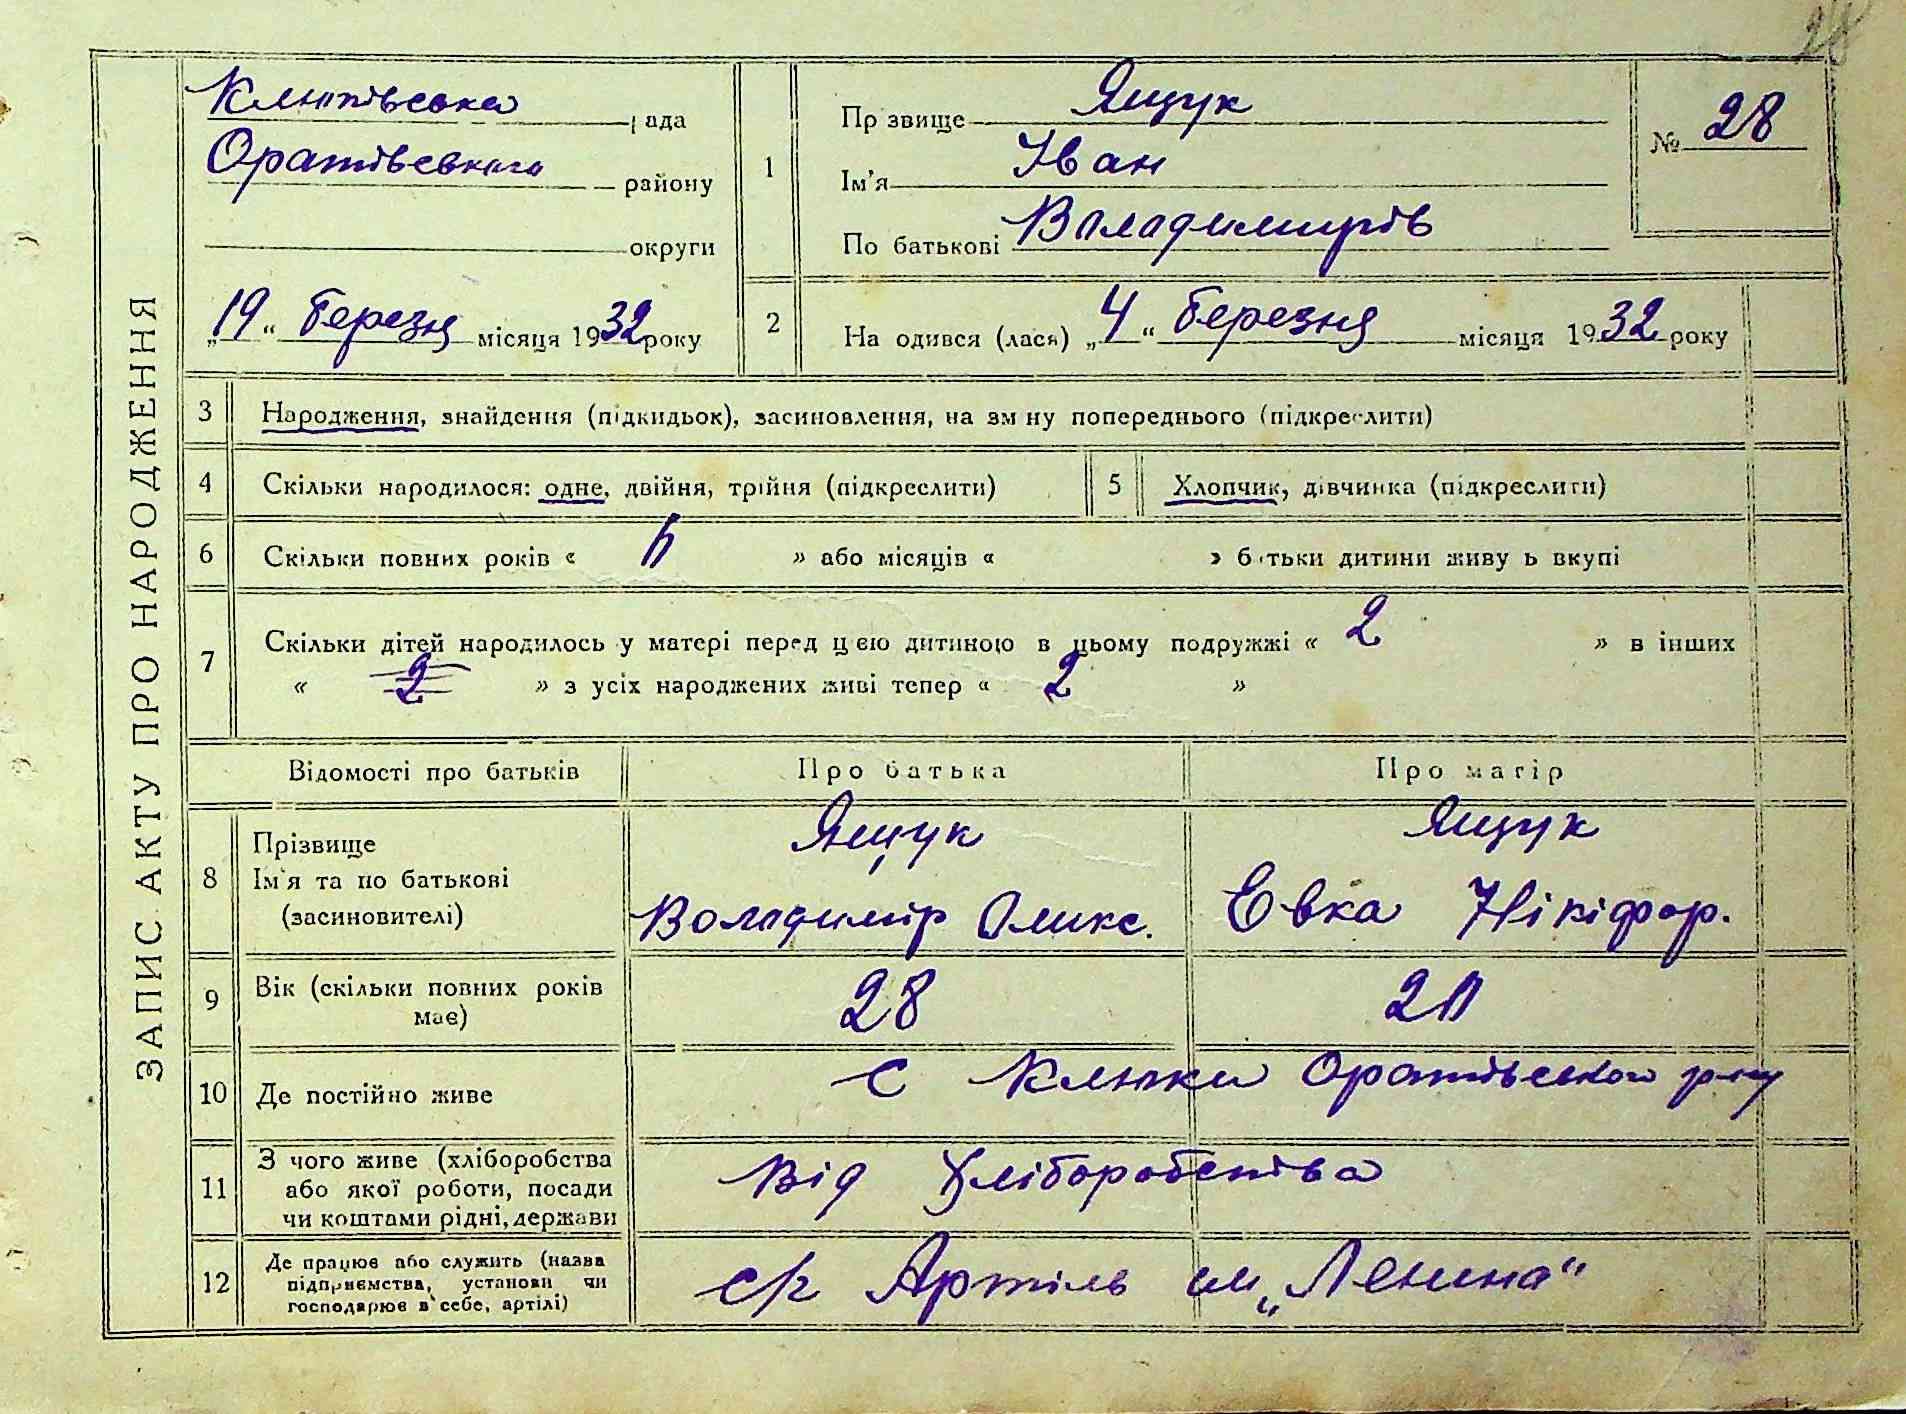 ЗАПИС АКТУ ПРО НАРОДЖЕННЯ
Клюківська рада
Оратівського району
округи
„19“ березня місяця 1932 року
1
Прізвище Ящук
Ім’я Іван
По батькові Володимирів
№ 28
2
Народився (лася) „4“ березня місяця 1932 року
3 Народження, знайдення (підкидьок), засиновлення, на зміну попереднього (підкреслити)
4 Скільки народилося: одне, двійня, трійня (підкреслити)
5 Хлопчик, дівчинка (підкреслити)
6 Скільки повних років « » або місяців « » батьки дитини живуть вкупі
7 Скільки дітей народилось у матері перед цією дитиною в цьому подружжі « 2 » в інших
« 2 » з усіх народжених живі тепер « 2 »
Відомості про батьків Про батька Про матір
8 Прізвище
Ім’я та по батькові
(засиновителі)
Ящук
Володимір Олекс.
Ящук
Евка Нікіфор.
9 Вік (скільки повних років
має)
28
10 Де постійно живе
с Клюки Оратівського р-ну
11 З чого живе (хліборобства
або якої роботи, посади
чи коштами рідні, держави
Від Хліборобства
12 Де працює або служить (назва
підприємства, установи чи
господарює в себе, артілі)
с/г Артіль ім „Леніна“